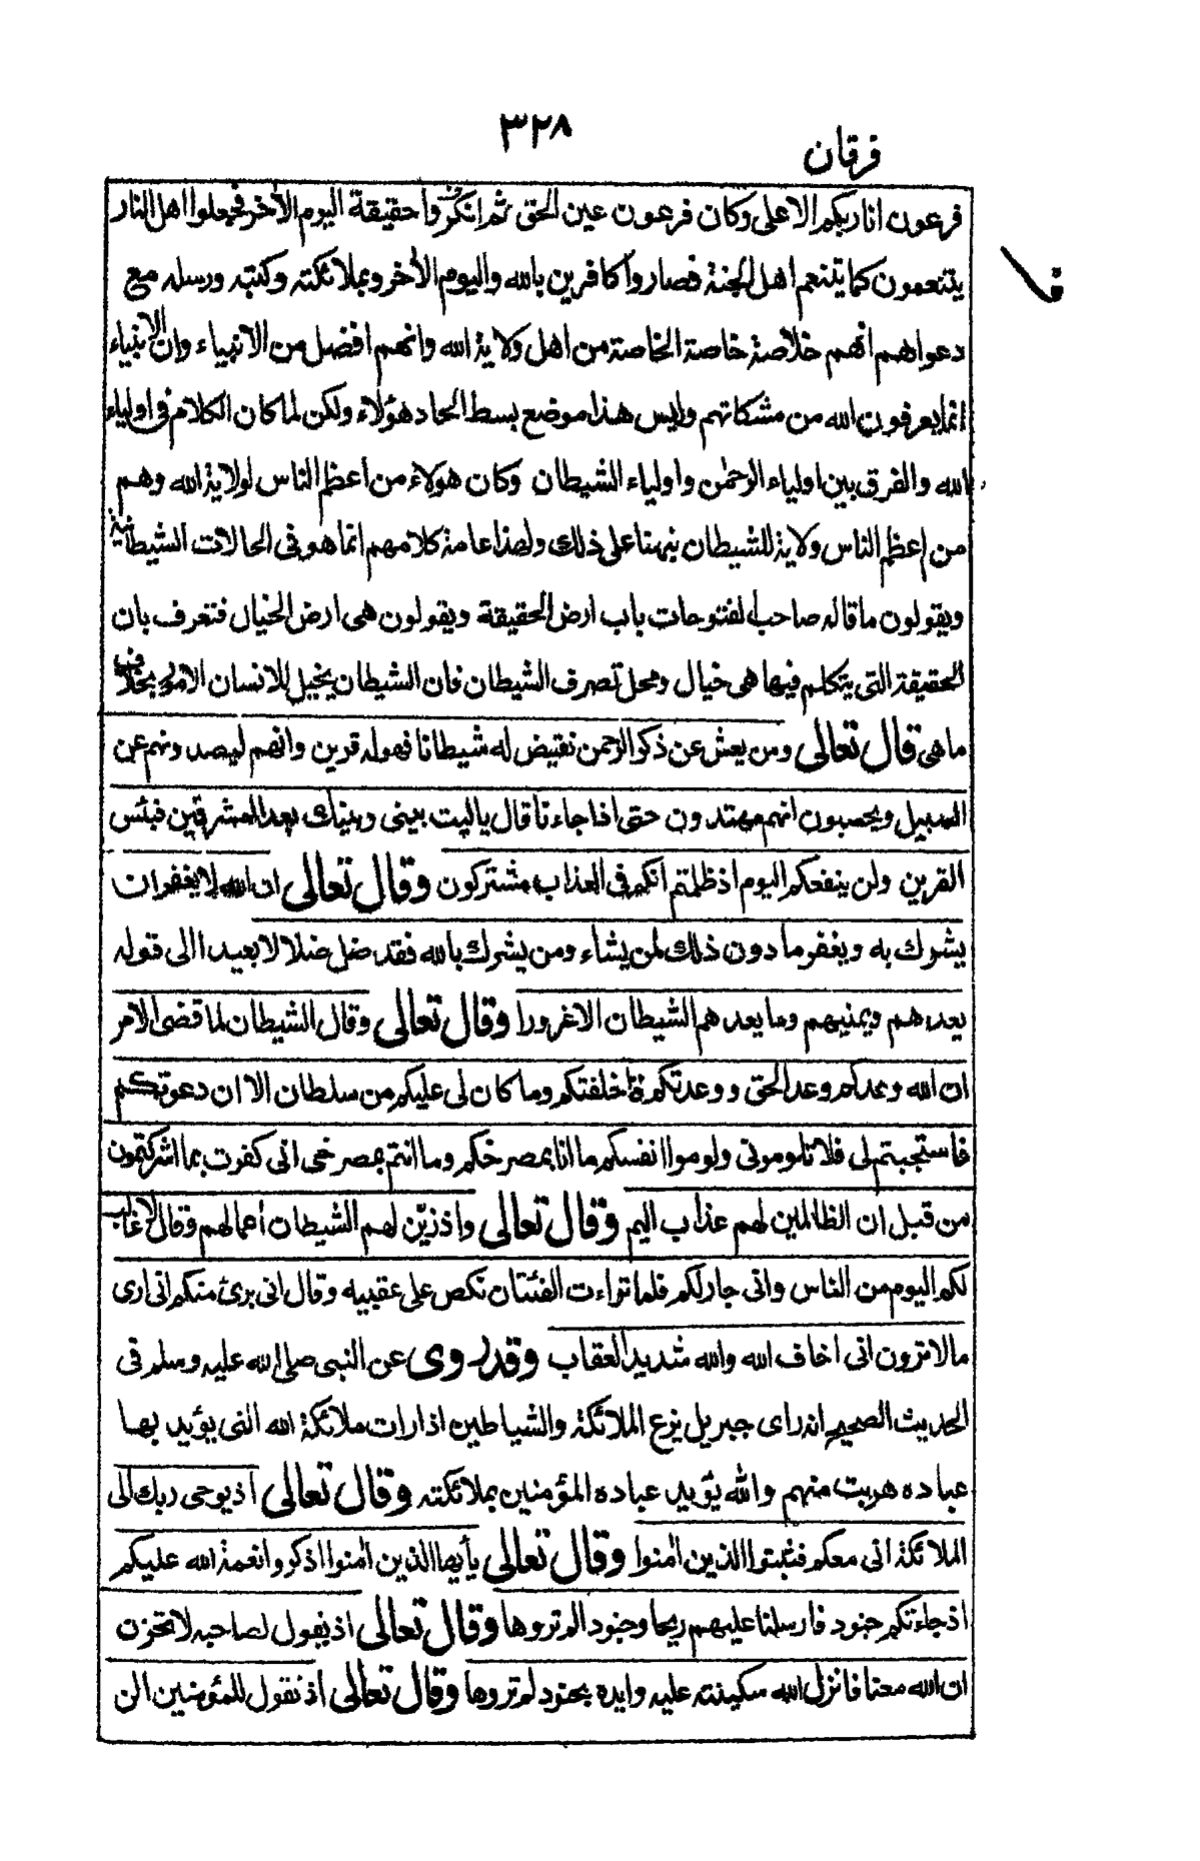 ٣٢٨
فرقان
فرعون انا ربكم الاعلى وكان فرعون عين الحق ثم انكروا حقيقة اليوم الأخر فجعلوا اهل النار
يتنعمون كما يتنعم اهل الجنة فصاروا كافرين بالله واليوم الأخر وبملائكته وكتبه ورسله مع
دعواهم انهم خلاصة خاصة الخاصة من اهل ولاية الله وانهم افضل من الانبياء وان الانبياء
انما يعرفون الله من مشكاتهم وليس هذا موضع بسط الحاد هؤلاء ولكن لما كان الكلام فى اولياء
الله والفرق بين اولياء الرحمٰن واولياء الشيطان وكان هؤلاء من اعظم الناس لولاية الله وهم
من اعظم الناس ولاية للشيطان نبهنا على ذلك ولهذا عامة كلامهم انما هو فى الحالات الشيطانية
ويقولون ما قاله صاحب الفتوحات باب ارض الحقيقة ويقولون هى ارض الخيال فتعرف بان
الحقيقة التى يتكلم فيها هى خيال ومحل تصرف الشيطان فان الشيطان يخيل للانسان الامور بخلاف
ما هى قال تعالى ومن يعش عن ذكر الرحمن نقيض له شيطانا فهو له قرين وانهم ليصدونهم عن
السبيل ويحسبون انهم مهتدون حتى اذا جاءنا قال ياليت بينى وبينك بعد المشرقين فبئس
القرين ولن ينفعكم اليوم اذ ظلمتم انكم فى العذاب مشتركون وقال تعالى ان الله لا يغفر ان
يشرك به ويغفر ما دون ذلك لمن يشاء ومن يشرك بالله فقد ضل ضلالا بعيدا الى قوله
يعدهم ويمنيهم وما يعدهم الشيطان الا غرورا وقال تعالى وقال الشيطان لما قضى الامر
ان الله وعدكم وعد الحق ووعدتكم فاخلفتكم وما كان لى عليكم من سلطان الا ان دعوتكم
فاستجبتم لى فلا تلومونى ولوموا انفسكم ما انا بمصرخكم وما انتم بمصرخى انى كفرت بما اشركتمون
من قبل ان الظالمين لهم عذاب اليم وقال تعالى واذ زيّن لهم الشيطان أعمالهم وقال لا غالب
لكم اليوم من الناس وانى جار لكم فلما تراءت الفئتان نكص على عقبيه وقال انى برئ منكم انى ارى
مالا ترون انى اخاف الله والله شديد العقاب وقد روى عن النبى صلى الله عليه وسلم فى
الحديث الصحيح انه راى جبريل يزع الملائكة والشياطين اذا رات ملائكة الله التى يؤيد بها
عباده هربت منهم والله يؤيد عباده المؤمنين بملائكته وقال تعالى اذ يوحى ربك الى
الملائكة انى معكم فثبتوا الذين اٰمنوا وقال تعالى يأيها الذين اٰمنوا اذكروا نعمة الله عليكم
اذ جاءتكم جنود فارسلنا عليهم ريحا وجنودا لم تروها وقال تعالى اذ يقول لصاحبه لا تحزن
ان الله معنا فانزل الله سكينته عليه وايده بجنود لم تروها وقال تعالى اذ تقول للمؤمنين الن